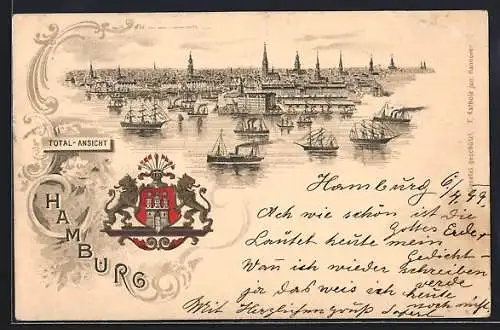 TOTAL-ANSICHT
HAMBURG
Hamburg 6/4.99
Ach wie schön ist die
Gottes Erde,
Lautet heute mein
Gedicht –
Wan ich wieder schreiben
werde
ja das weis ich heute
noch nicht
Mit Herzlichen gruß
gesetzl. geschützt. jun. Hannover